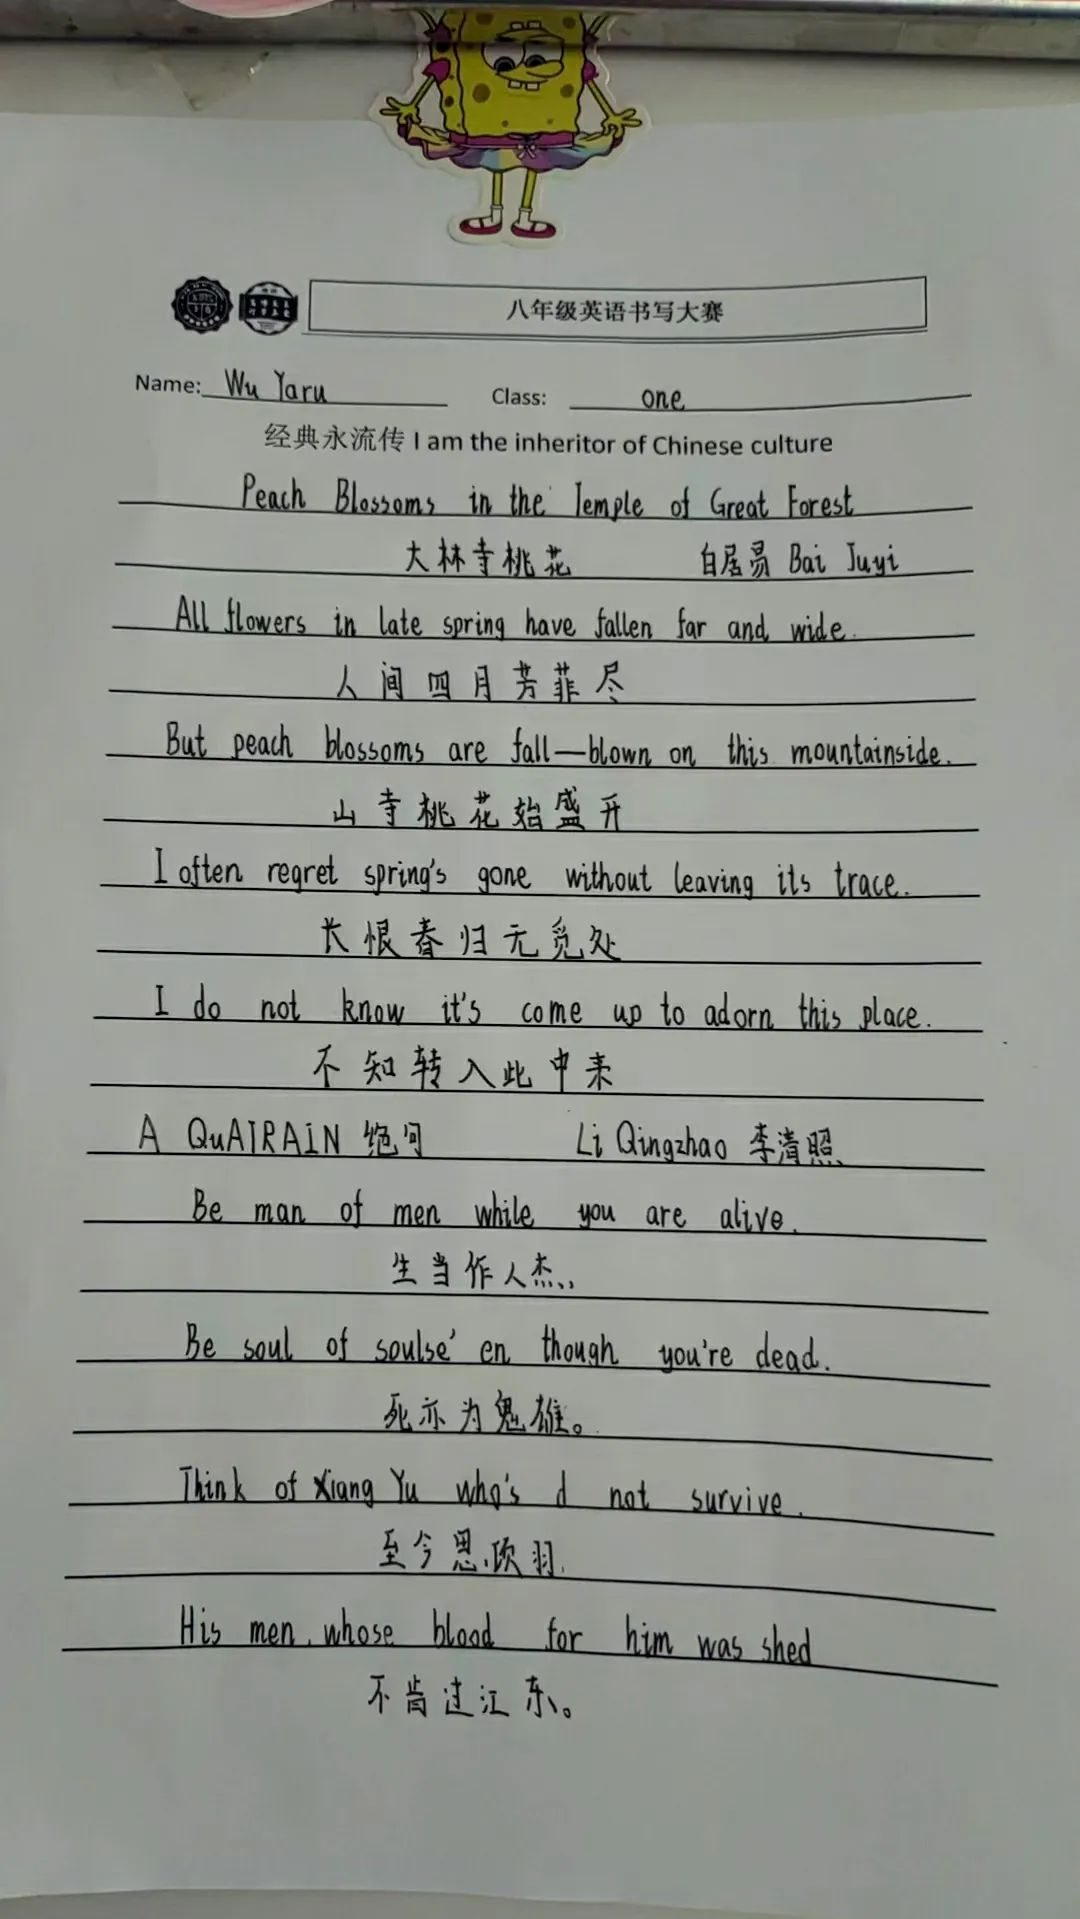 八年级英语书写大赛
Name: Wu Yaru Class: one
经典永流传 I am the inheritor of Chinese culture
Peach Blossoms in the Temple of Great Forest
大林寺桃花 白居易 Bai Juyi
All flowers in late spring have fallen far and wide.
人间四月芳菲尽
But peach blossoms are fall—blown on this mountainside.
山寺桃花始盛开
I often regret spring's gone without leaving its trace.
长恨春归无觅处
I do not know it's come up to adorn this place.
不知转入此中来
A QuATRAIN 绝句 Li Qingzhao 李清照
Be man of men while you are alive.
生当作人杰,
Be soul of soulse' en though you're dead.
死亦为鬼雄。
Think of Xiang Yu who's d not survive.
至今思项羽.
His men whose blood for him was shed
不肯过江东。